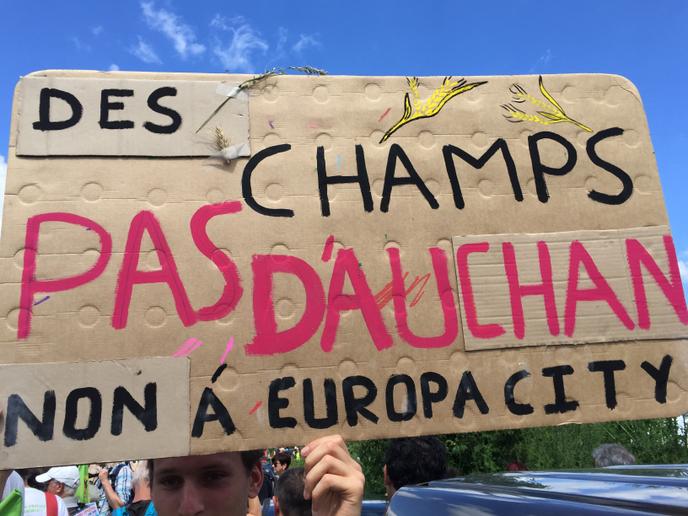 DES
CHAMPS
PAS D'AUCHAN
NON À EUROPA CITY